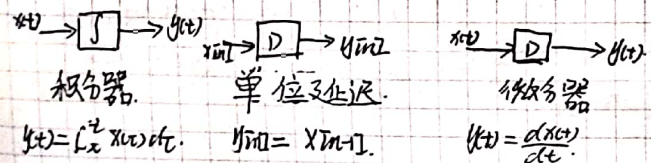 x(t) ∫ y(t) x[n] D y[n] x(t) D y(t)
积分器. 单位延迟. 微分器
y(t)=∫_{-∞}^{t} x(τ)dτ. y[n]=x[n-1]. y(t)=dx(t)/dt.